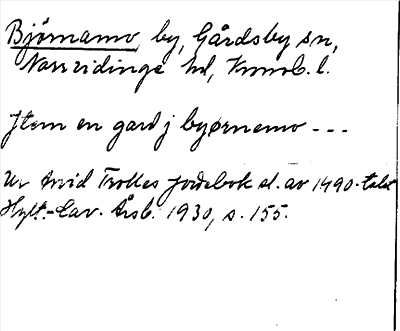 Björnamo, by, Gårdsby sn,
Norrvidinge hd, Kronob. l.
Jtem en gard j byørnemo ---
Ur Arvid Trolles jordebok sl. av 1490-talet
Hylt.-Cav. Årsb. 1930, s. 155.